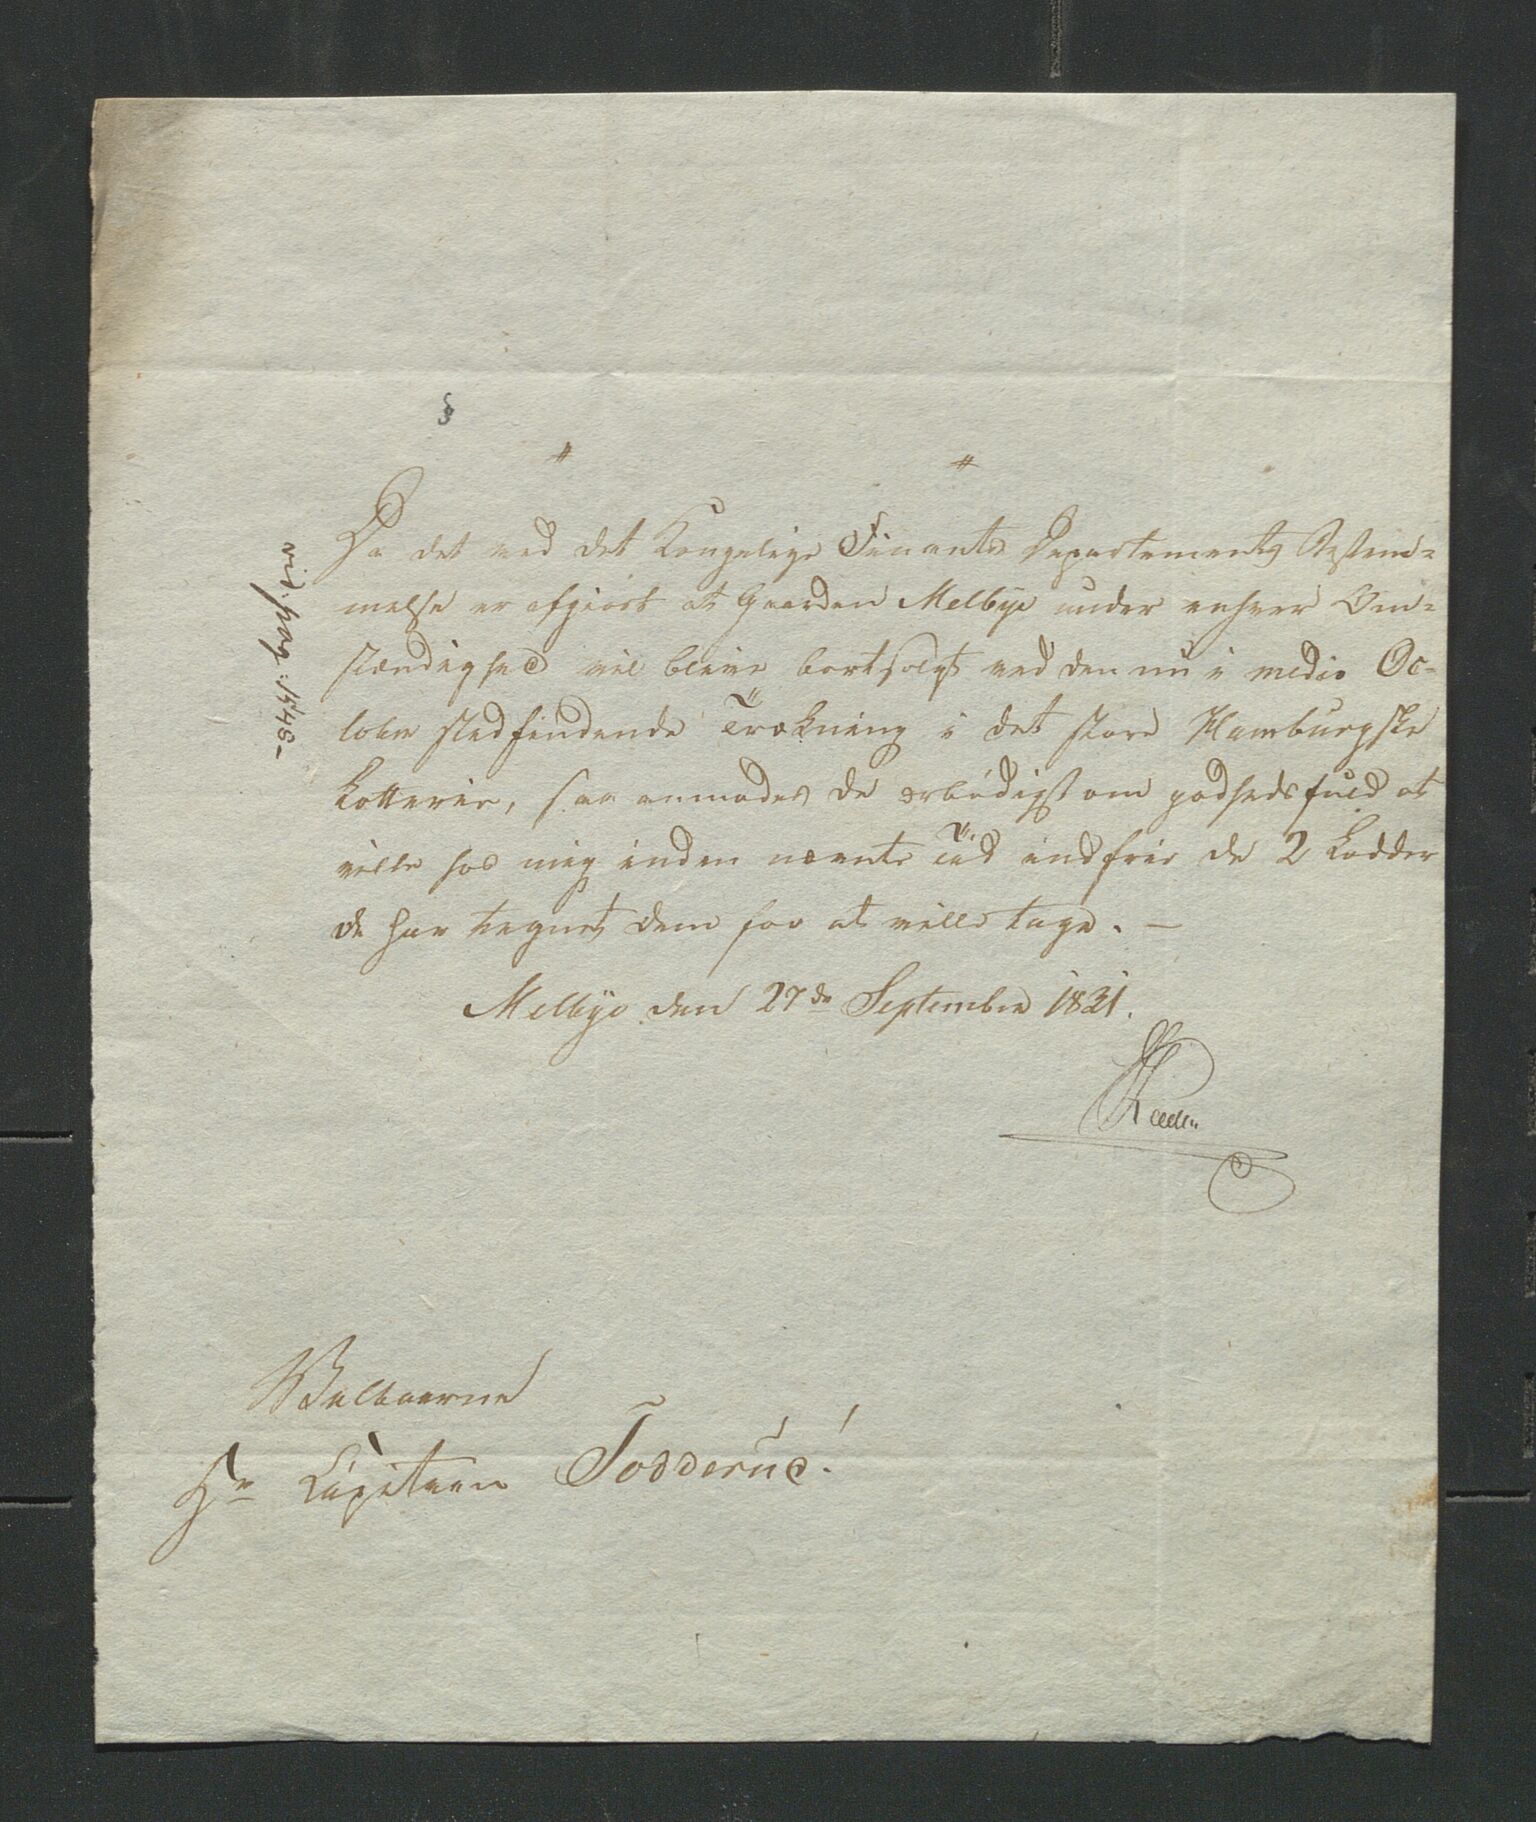 Da det ved det Kongelige Finants Departements Bestem=
melse er afgiort at Gaarden Melbye under enhver Om=
stændighed vil blive bortsolgt ved den nu i medio Oc=
tober stedfindende Trækning i det store Hamburgske
Lotterie, saa anmodes De ærbödigst om godhedsfuld at
ville hos mig inden nævnte Tiid indfrie de 2 Lodder
De har tegnet Dem for at ville tage. —
Melbye den 27de September 1821.
Velbaarne
Hr Capitain Todderud!
vid. pag: 1548-